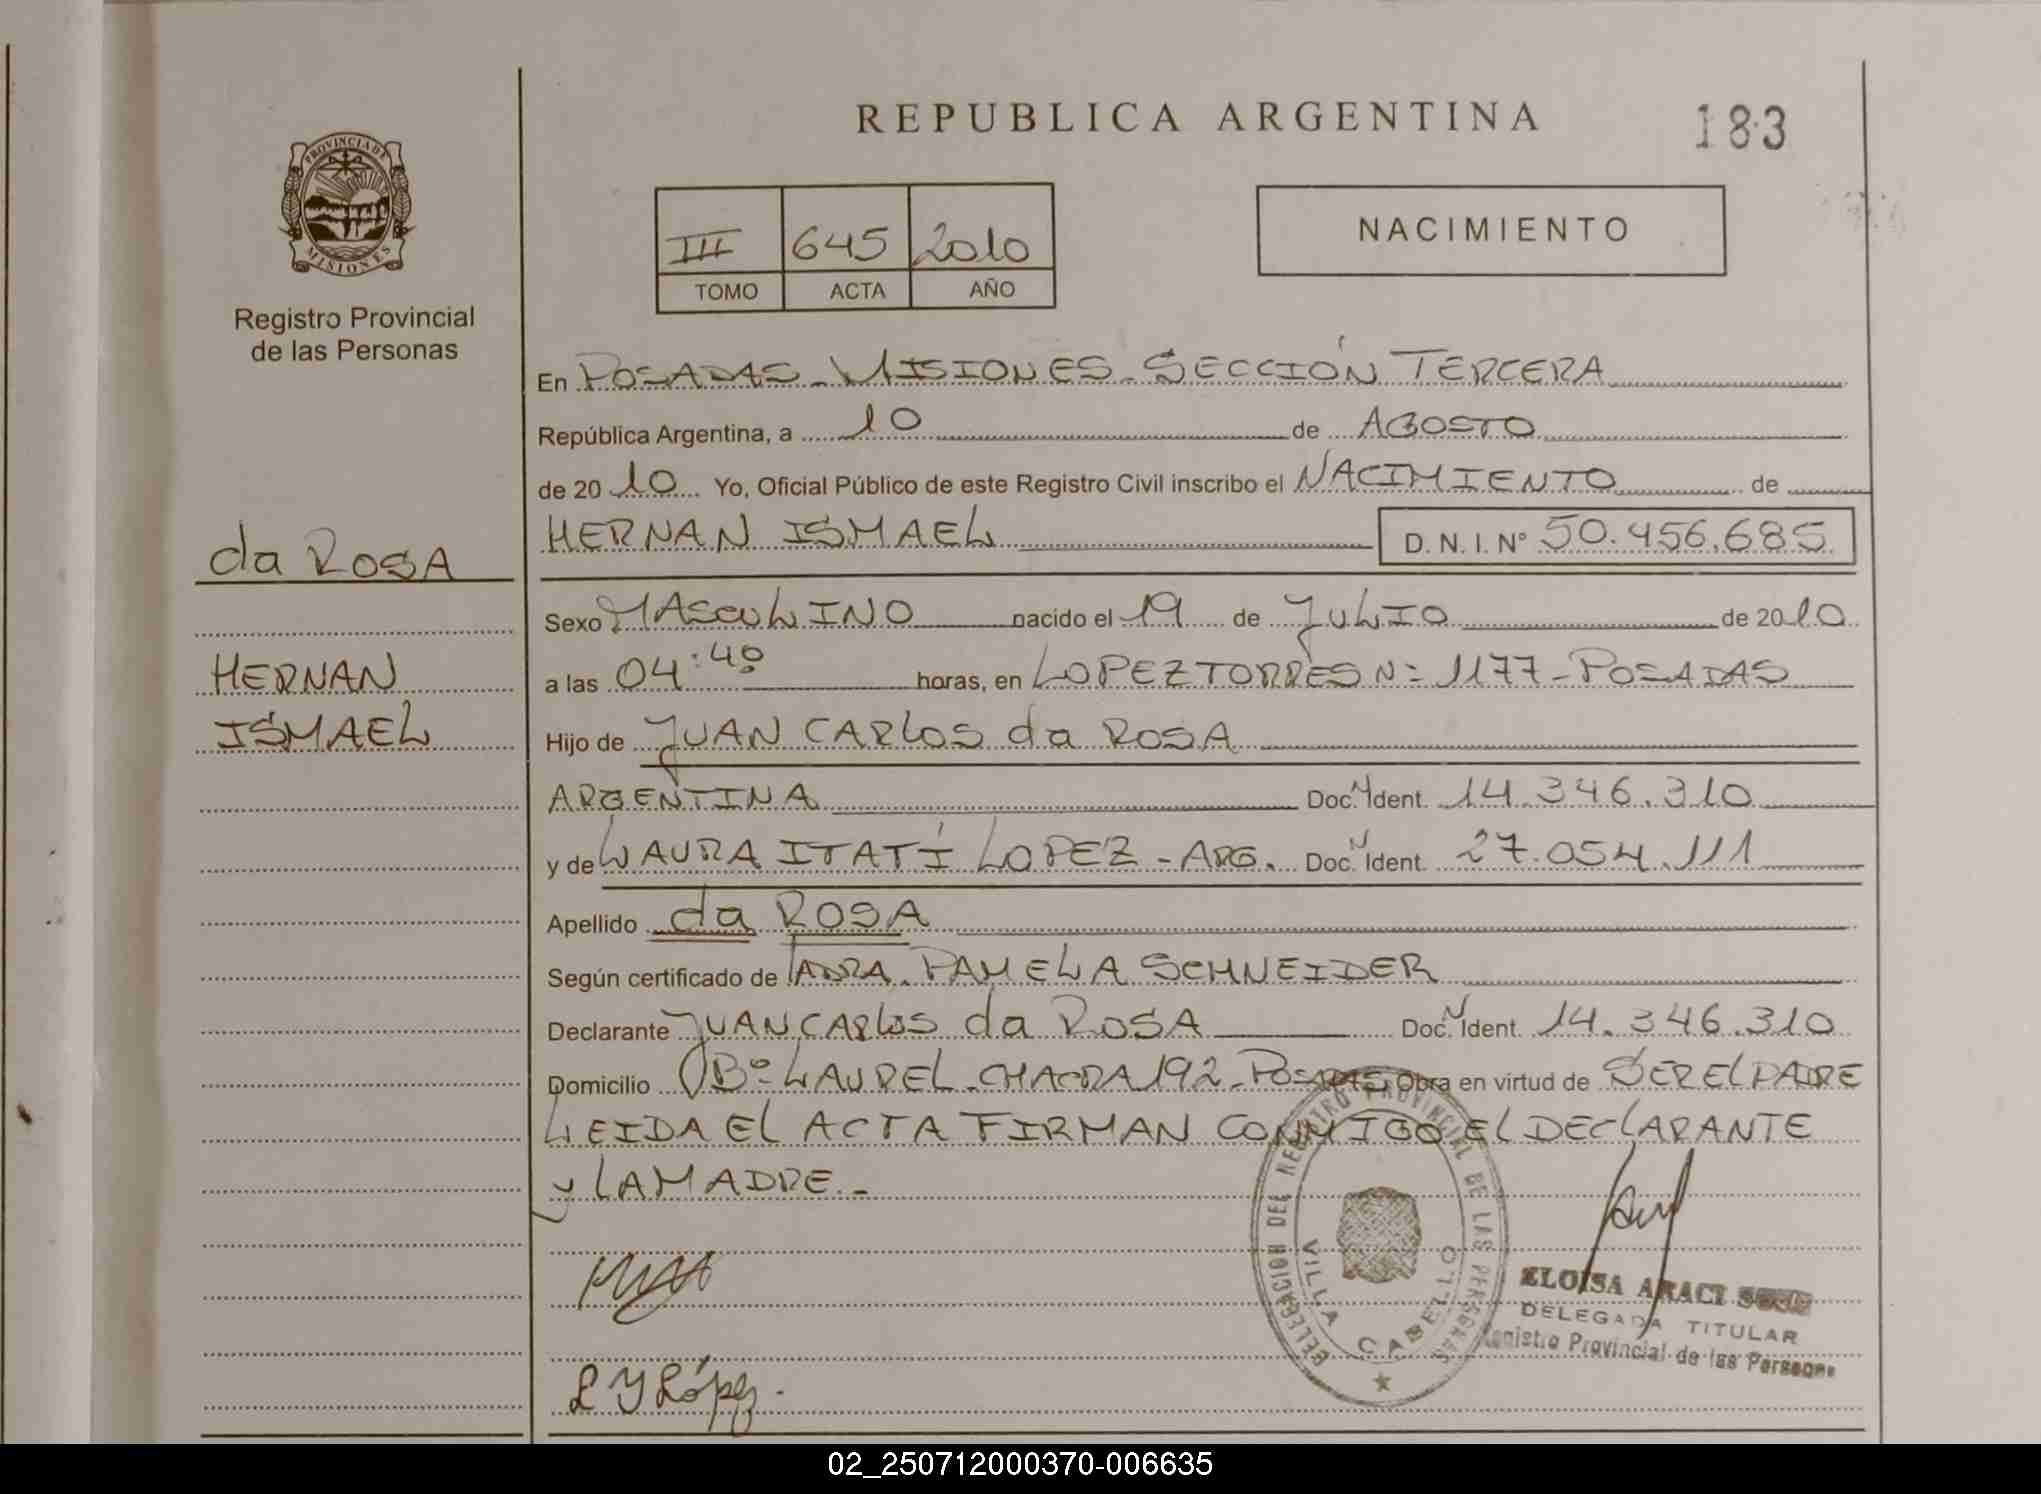 REPUBLICA ARGENTINA
183
PROVINCIA DE
MISIONES
Registro Provincial
de las Personas
III 645 2010
TOMO ACTA AÑO
NACIMIENTO
En POSADAS - MISIONES - SECCIÓN TERCERA
República Argentina, a 10 de AGOSTO
de 2010 Yo, Oficial Público de este Registro Civil inscribo el NACIMIENTO de
HERNAN ISMAEL D. N. I. N° 50.456.685
da ROSA
HERNAN
ISMAEL
Sexo MASCULINO nacido el 19 de JULIO de 2010
a las 04:40 horas, en LOPEZ TORRES N= 1177 - POSADAS
Hijo de JUAN CARLOS da ROSA
ARGENTINA Doc. Ident. 14.346.310
y de LAURA ITATÍ LOPEZ - ARG. Doc. Ident. 27.054.111
Apellido da ROSA
Según certificado de PAMELA SCHNEIDER
Declarante JUAN CARLOS da ROSA Doc. Ident. 14.346.310
Domicilio B° LAUREL - CHACRA 192 - POSADAS Obra en virtud de SER EL PADRE
LEIDA EL ACTA FIRMAN CONMIGO EL DECLARANTE
y LA MADRE. -
DELEGACION DEL REGISTRO PROVINCIAL DE LAS PERSONAS
VILLA CABELLO
ELOISA ARACI
DELEGADA TITULAR
Registro Provincial de las Personas
L Y López.
02_250712000370-006635